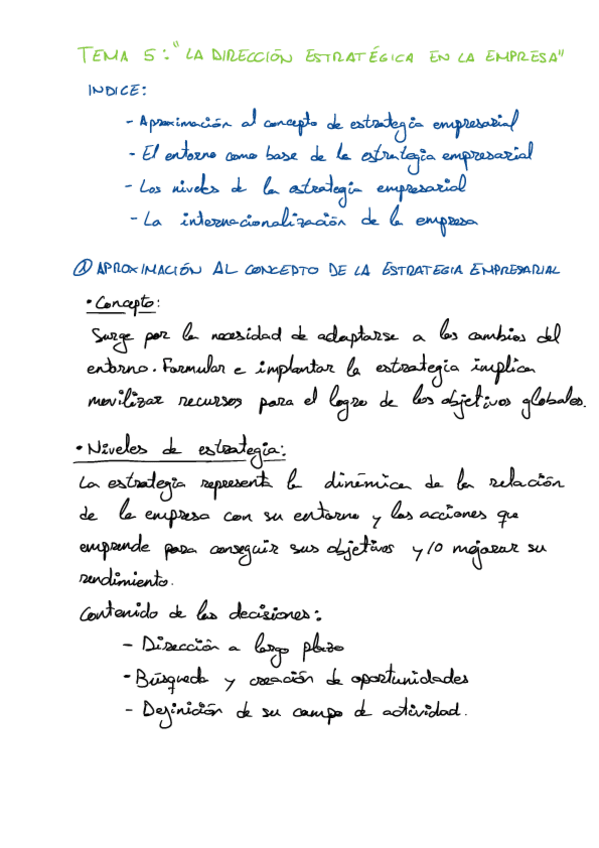 TEMA 5: "LA DIRECCIÓN ESTRATÉGICA EN LA EMPRESA"
INDICE:
- Aproximación al concepto de estrategia empresarial
- El entorno como base de la estrategia empresarial
- Los niveles de la estrategia empresarial
- La internacionalización de la empresa
① APROXIMACIÓN AL CONCEPTO DE LA ESTRATEGIA EMPRESARIAL
• Concepto:
Surge por la necesidad de adaptarse a los cambios del
entorno. Formular e implantar la estrategia implica
movilizar recursos para el logro de los objetivos globales.
• Niveles de estrategia:
La estrategia representa la dinámica de la relación
de la empresa con su entorno y las acciones que
emprende para conseguir sus objetivos y/o mejorar su
rendimiento.
Contenido de las decisiones:
- Dirección a largo plazo
- Búsqueda y creación de oportunidades
- Definición de su campo de actividad.